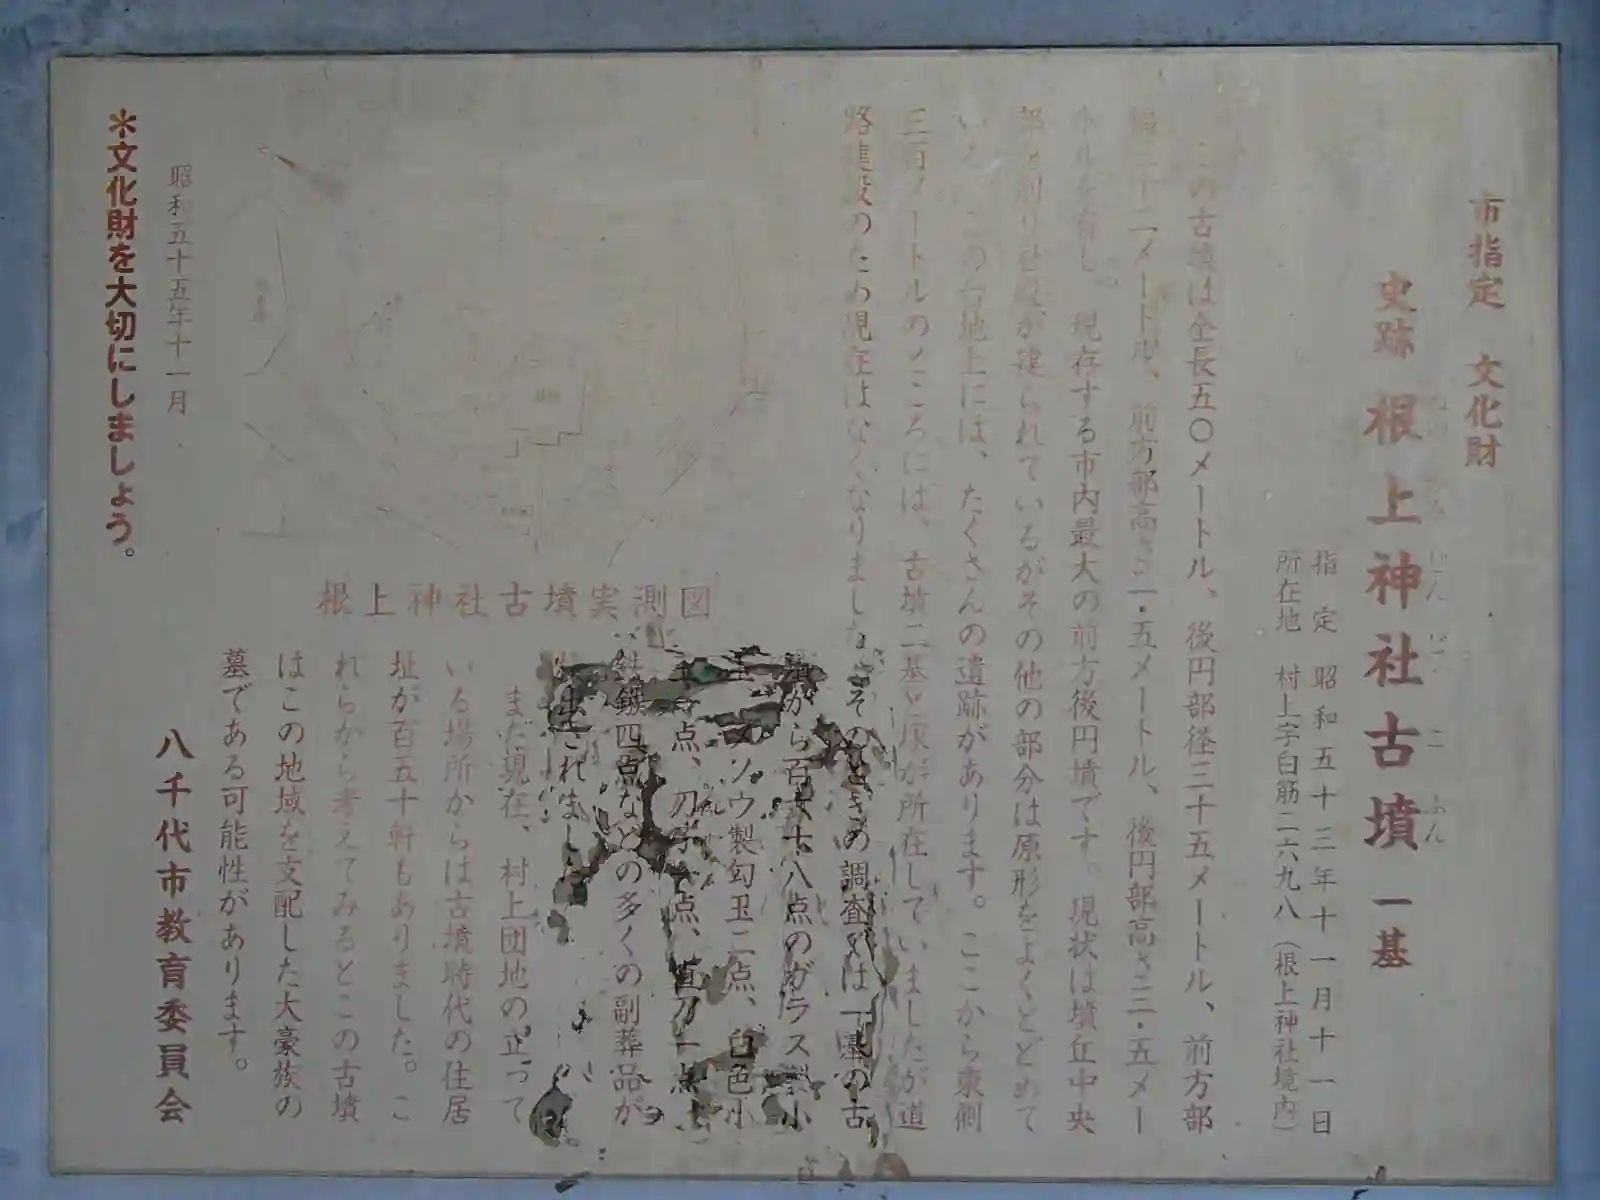 市指定 文化財
史跡 根上神社古墳 一基
じん じゃ こ ふん
指定 昭和五十三年十一月十一日
所在地 村上字白筋二六九八(根上神社境内)
この古墳は全長五〇メートル、後円部径三十五メートル、前方部
幅二十二メートル、前方部高さ二・五メートル、後円部高さ三・五メー
トルを有し、現存する市内最大の前方後円墳です。現状は墳丘中央
部を削り社殿が建られているがその他の部分は原形をよくとどめて
いる。この台地上には、たくさんの遺跡があります。ここから東側
三百メートルのところには、古墳二基と が所在していましたが道
路建設のため現在はなくなりました。そのときの調査では一基の古
墳から百六十八点のガラス製小
玉、 ソウ製勾玉二点、白色小
玉 点、刀子 点、直刀一点、
鉄鏃四点などの多くの副葬品が
出されました。
まだ現在、村上団地の立って
いる場所からは古墳時代の住居
址が百五十軒もありました。こ
れらから考えてみるとこの古墳
はこの地域を支配した大豪族の
墓である可能性があります。
根上神社古墳実測図
昭和五十五年十一月
八千代市教育委員会
＊文化財を大切にしましょう。